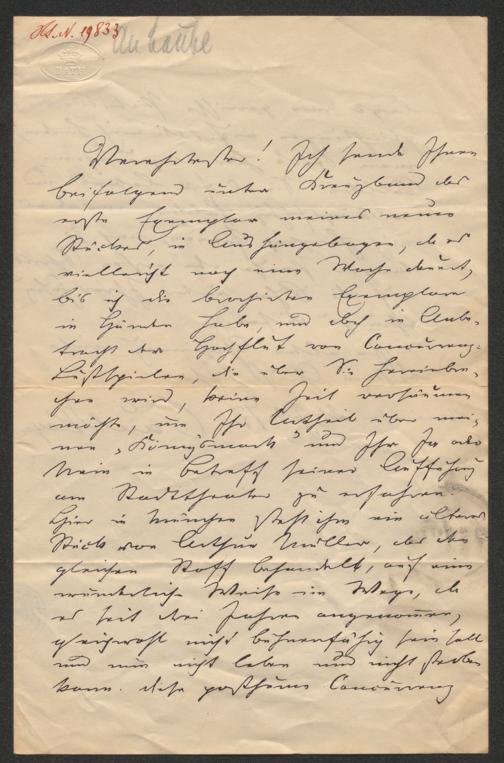 Hs. N. 19833
An Laube
Verehrtester! Ich sende Ihnen
beifolgend unter Kreuzband das
erste Exemplar meines neuen
Stückes, in Aushängebogen, da es
vielleicht noch eine Woche dauert,
bis ich die brochirten Exemplare
in Händen habe, und doch in Anbe-
tracht der Hochflut von Concurrenz-
Lustspielen, die über Sie hereinbre-
chen wird, keine Zeit versäumen
möchte, um Ihr Urtheil über mei-
nen „Königsmark" und Ihr Ja oder
Nein in Betreff seiner Aufführung
am Stadttheater zu erfahren.
Hier in München steht ihm ein älteres
Stück von Arthur Müller, das den
gleichen Stoff behandelt, auf eine
wunderliche Weise im Wege, da
es seit drei Jahren angenommen,
gleichwohl nicht bühnenfähig sein soll
und nun nicht leben und nicht sterben
kann. Diese posthume Concurrenz